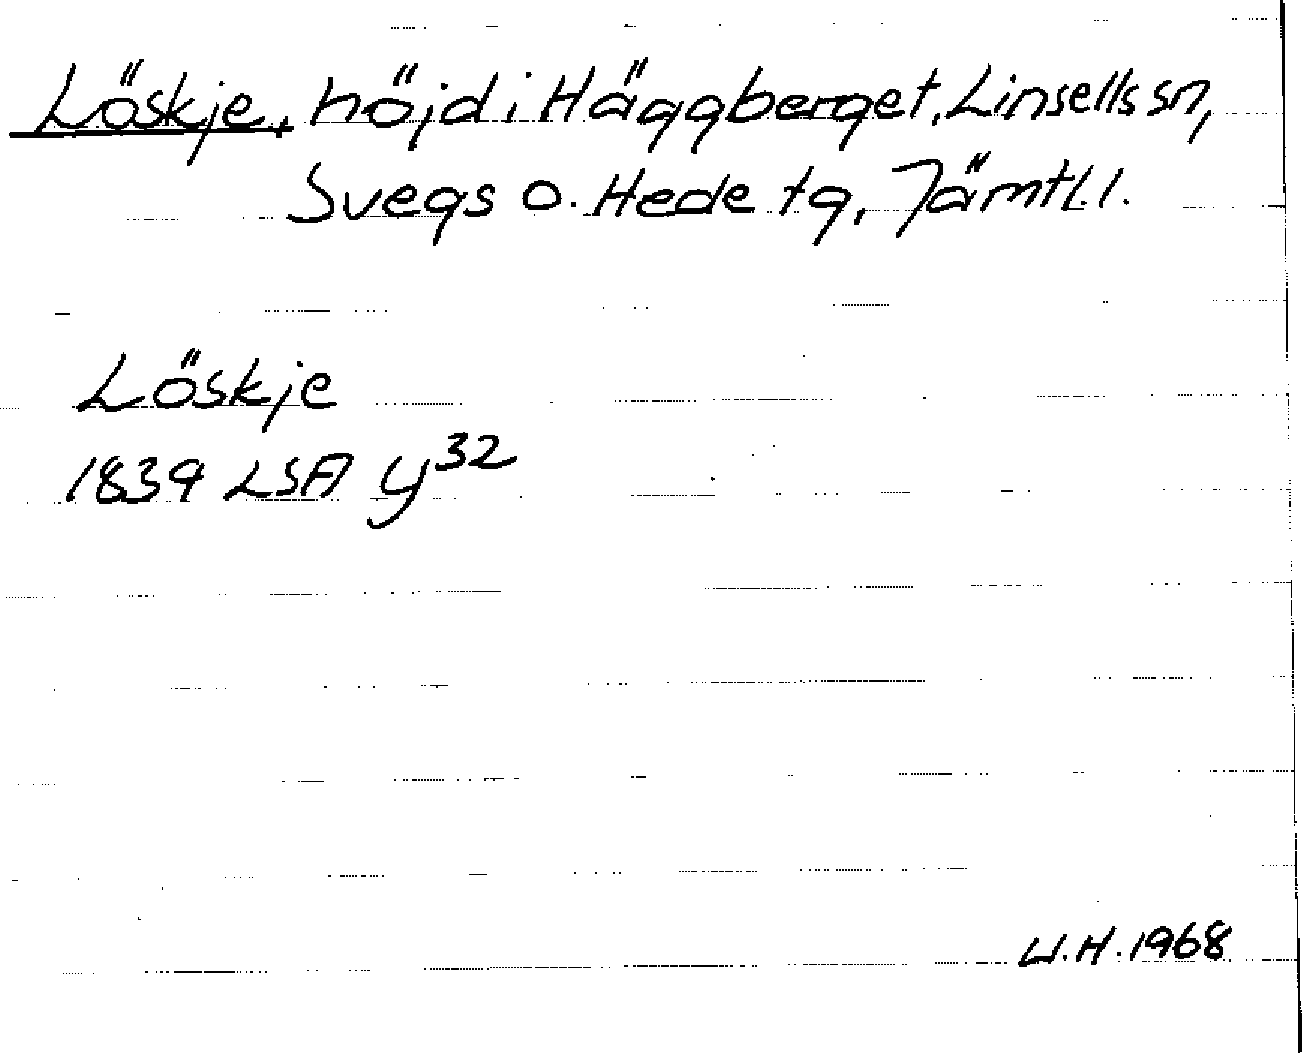 Löskje, höjd i Häggberget, Linsells sn,
Svegs o. Hede tg, Jämtl.l.
Löskje
1839 LSA y³²
W.H. 1968